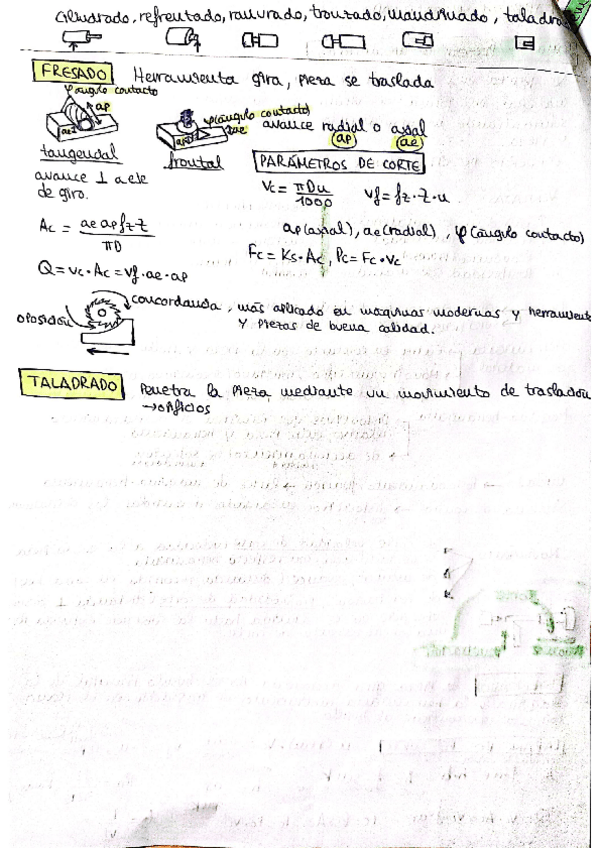 Cilindrado, refrentado, ranurado, tronzado, mandrinado, taladrado
FRESADO Herramienta gira, pieza se traslada
φ ángulo contacto
ap
ae
tangencial
avance ⊥ a eje
de giro.
φ(ángulo contacto)
ae
ap
frontal
avance radial o axial
(ap) (ae)
PARÁMETROS DE CORTE
Vc = πDn/1000 Vf = fz·Z·n
Ac = ae ap fz Z / πD
ap(axial), ae(radial), φ(ángulo contacto)
Fc = Ks·Ac, Pc = Fc·Vc
Q = Vc·Ac = Vf·ae·ap
concordancia, más aplicado en máquinas modernas y herramientas
y piezas de buena calidad.
oposición
TALADRADO Penetra la pieza mediante un movimiento de traslación
→ orificios